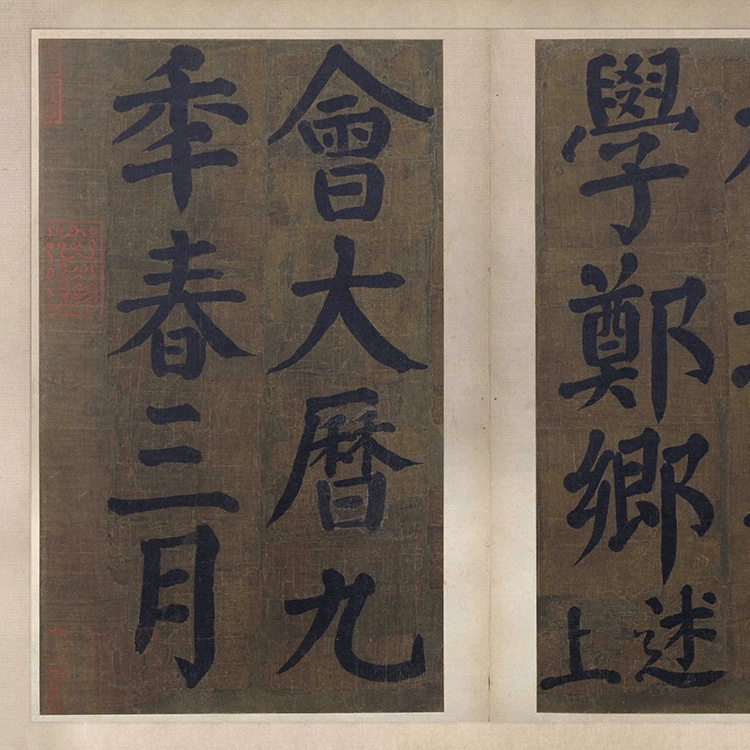 學鄭鄉述上
會大曆九
年春三月